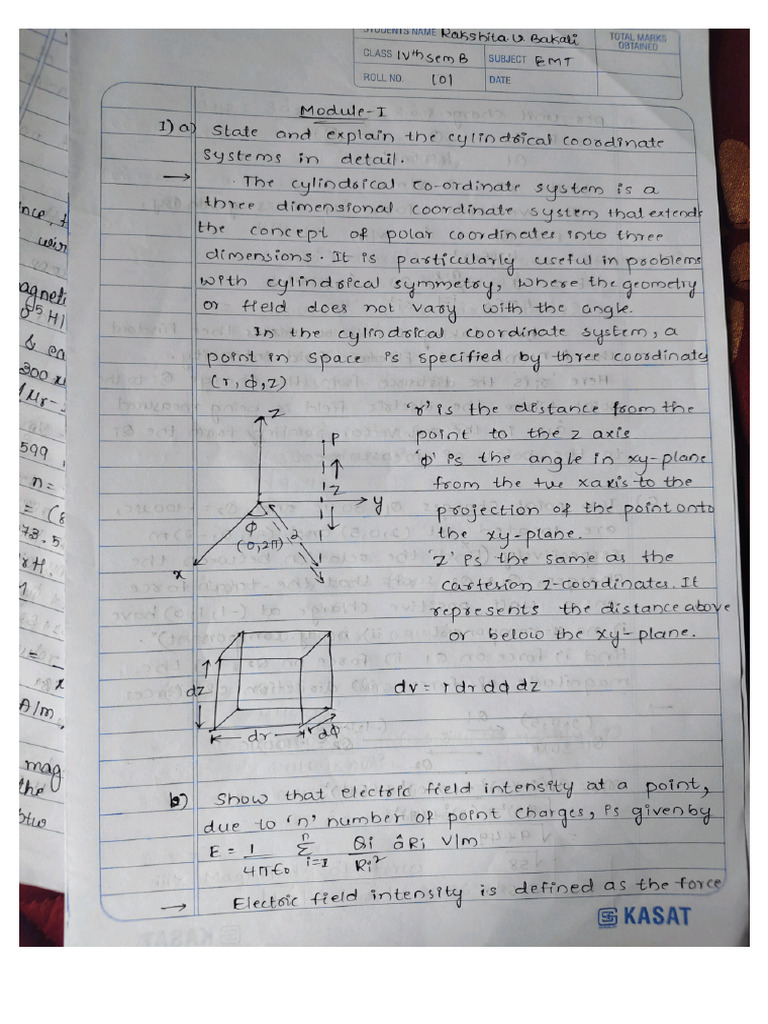 STUDENTS NAME Rakshita V. Bakali
TOTAL MARKS
OBTAINED
CLASS IVth sem B SUBJECT EMT
ROLL NO. 101 DATE
Module-I
1) a) State and explain the cylindrical coordinate
systems in detail.
→ The cylindrical co-ordinate system is a
three dimensional coordinate system that extends
the concept of polar coordinates into three
dimensions. It is particularly useful in problems
with cylindrical symmetry, where the geometry
or field does not vary with the angle.
In the cylindrical coordinate system, a
point in space is specified by three coordinates
(r, φ, z)
'r' is the distance from the
point to the z axis
'φ' is the angle in xy-plane
from the +ve x axis to the
projection of the point onto
the xy-plane.
'Z' is the same as the
cartesion z-coordinates. It
represents the distance above
or below the xy-plane.
Z
P
Z
y
φ
(0, 2π)
x
dz
dr
r dφ
dv = r dr dφ dz
b) Show that electric field intensity at a point,
due to 'n' number of point charges, is given by
E = 1/4πε₀ Σ i=1 n Qi/Ri² âRi V/m
→ Electric field intensity is defined as the force
KASAT
agneti
& ea
599
n=
73.5
A/m,
mag
the